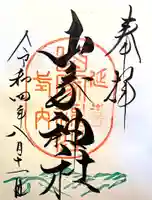 奉拝
延喜
山家神社
式内
令和四年八月十一日